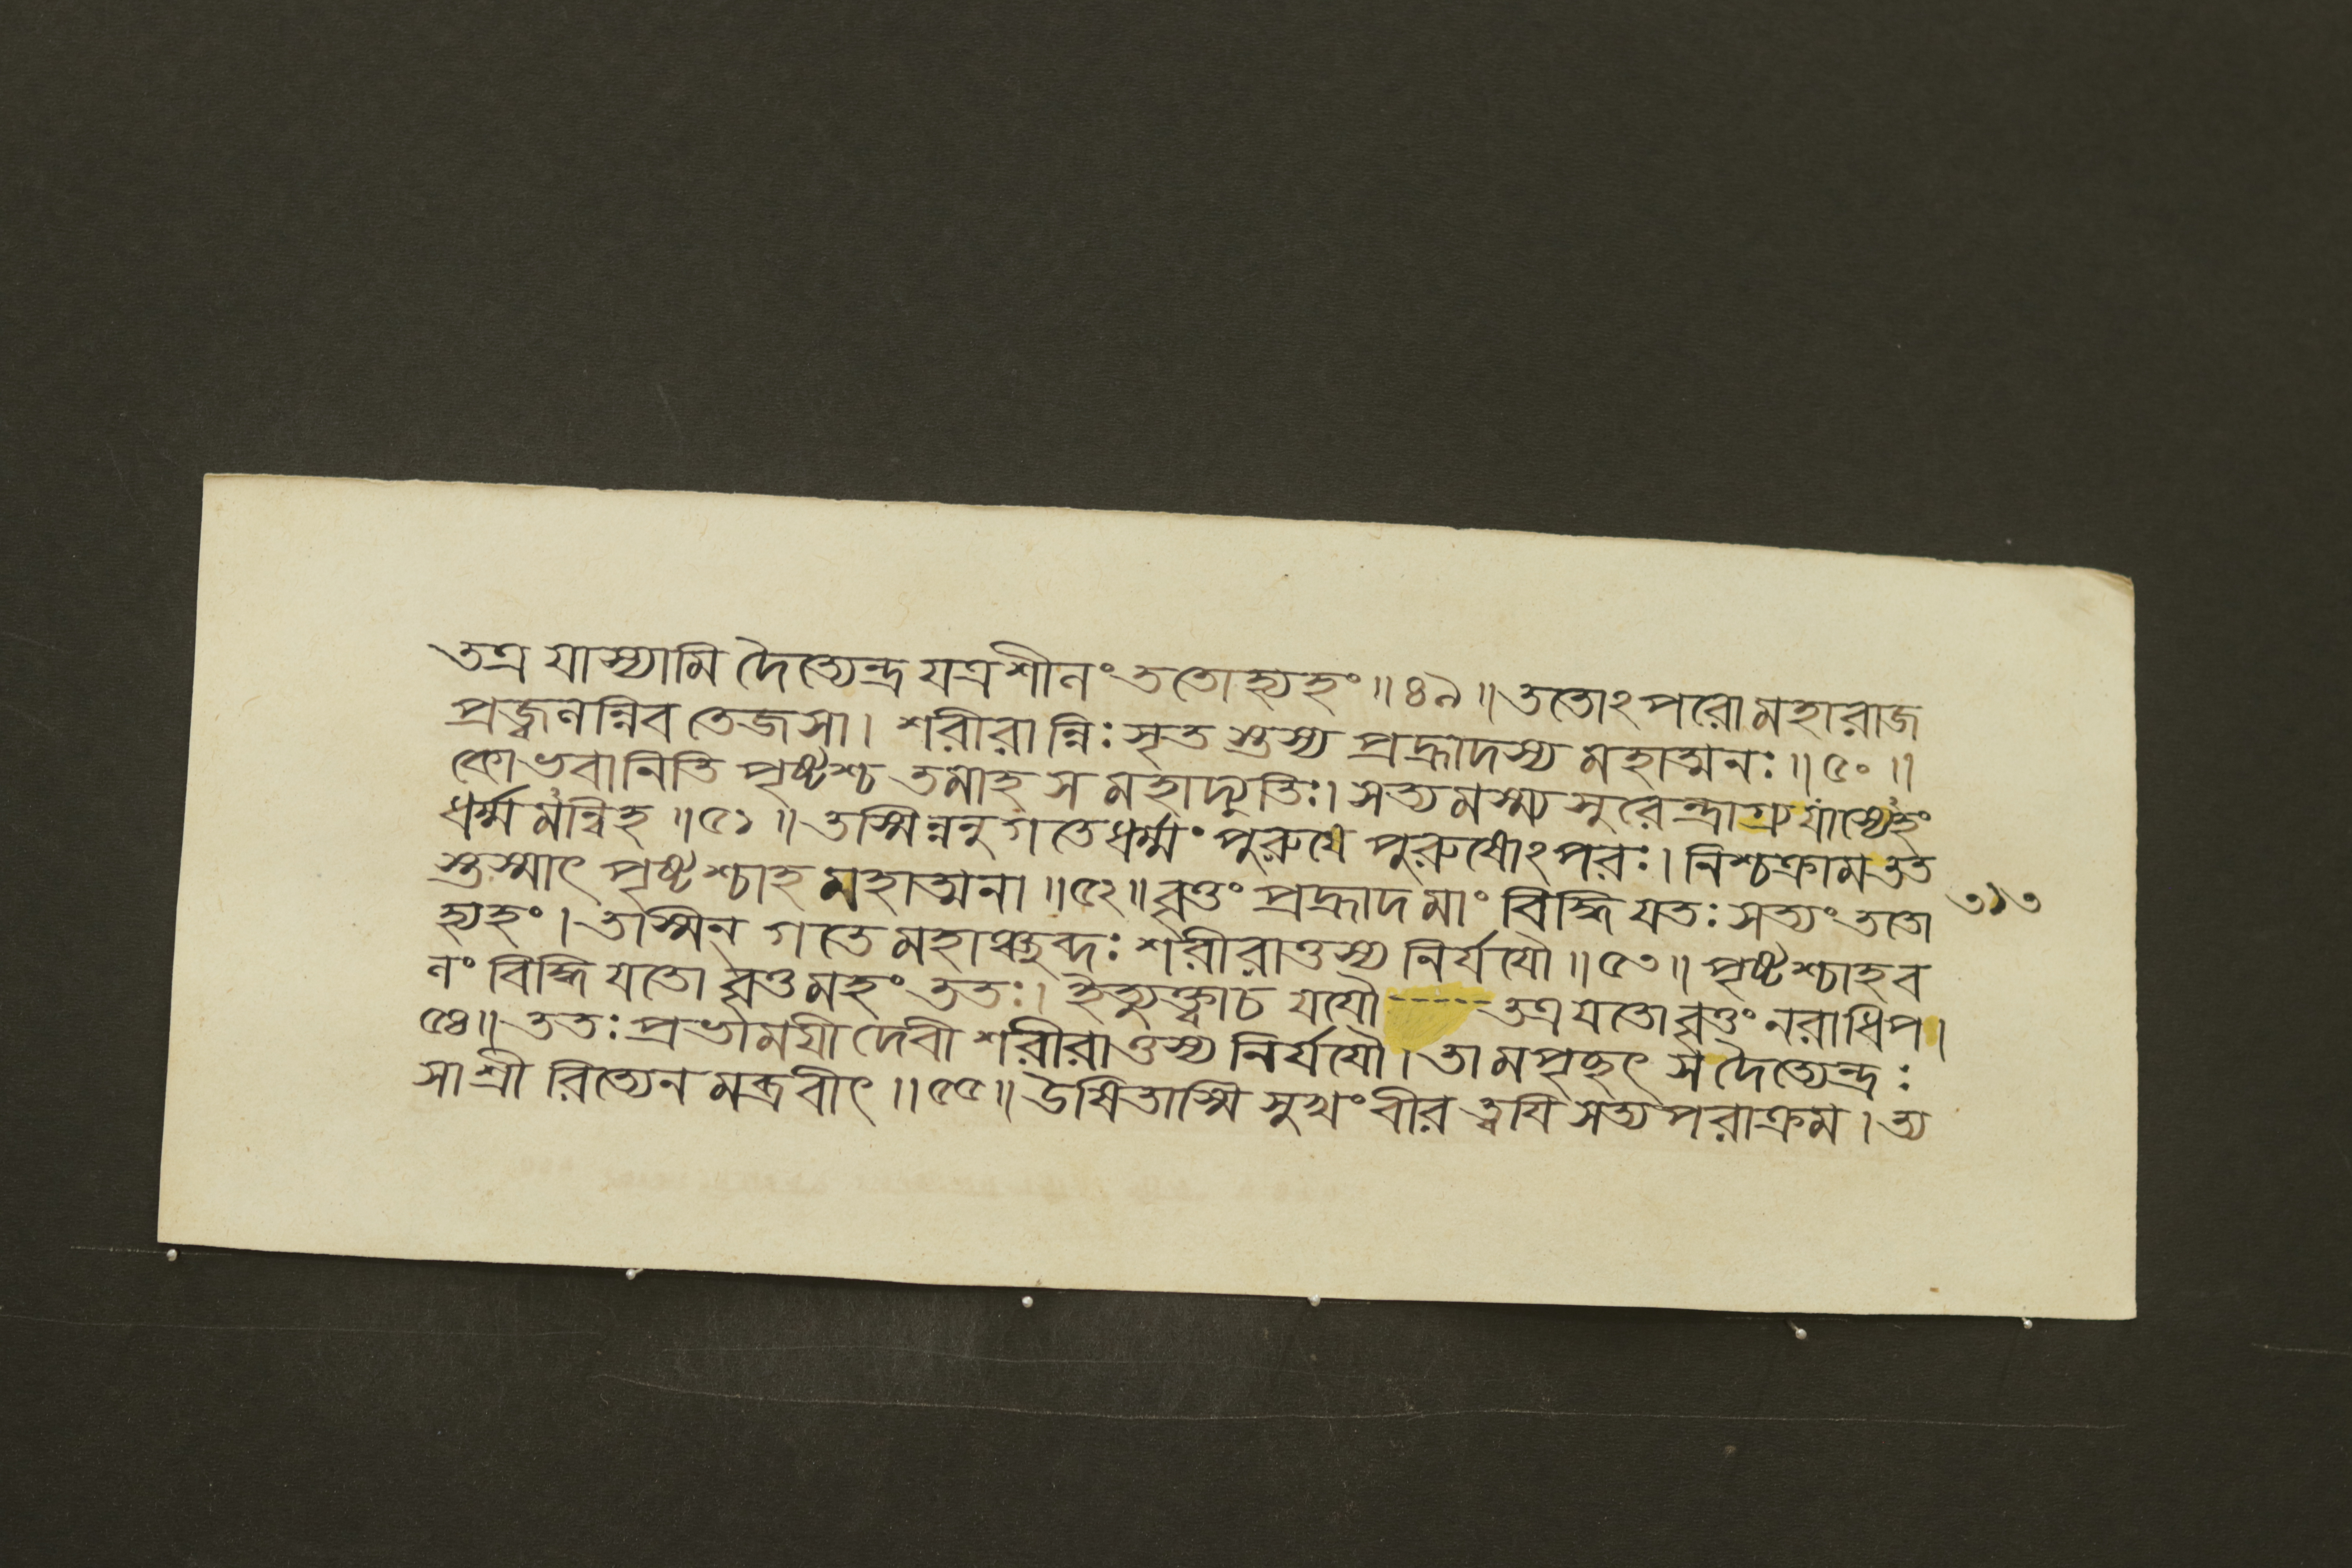 তত্র যাস্যামি দৈত্যেন্দ্র যত্রশীলং ততোহ্যহং ॥ ৪৯ ॥ ততোঽপরো মহারাজ
প্রজ্বলন্নিব তেজসা। শরীরান্নিঃসৃত স্তস্য প্রহ্লাদস্য মহাত্মনঃ ॥ ৫০ ॥
কোভবানিতি পৃষ্টশ্চ তমাহ স মহাদ্যুতিঃ। সত্যমস্ম্যসুরেন্দ্রাগ্র্য যাস্যেহং
ধর্ম্মমন্বিহ ॥ ৫১ ॥ তস্মিন্ননুগতেধর্ম্মং পুরুষে পুরুষোঽপরঃ। নিশ্চক্রামতত
স্তস্মাৎ পৃষ্টশ্চাহ মহাত্মনা ॥ ৫২ ॥ বৃত্তং প্রহ্লাদ মাং বিদ্ধি যতঃ সত্যং ততো ৩১৩
হ্যহং। তস্মিন গতে মহাঞ্ছব্দঃ শরীরাত্তস্য নির্যযৌ ॥ ৫৩ ॥ পৃষ্টশ্চাহব
লং বিদ্ধি যতো বৃত্তমহং ততঃ। ইত্যুক্ত্বাচ যযৌ ----- তত্র যতো বৃত্তং নরাধিপ।
৫৪ ॥ ততঃ প্রভাময়ী দেবী শরীরাত্তস্য নির্যযৌ। তামপৃচ্ছৎ স দৈত্যেন্দ্রঃ
সা শ্রী রিত্যেন মব্রবীৎ ॥ ৫৫ ॥ উষিতাস্মি সুখং বীর ত্বযি সত্য পরাক্রম। ত্য